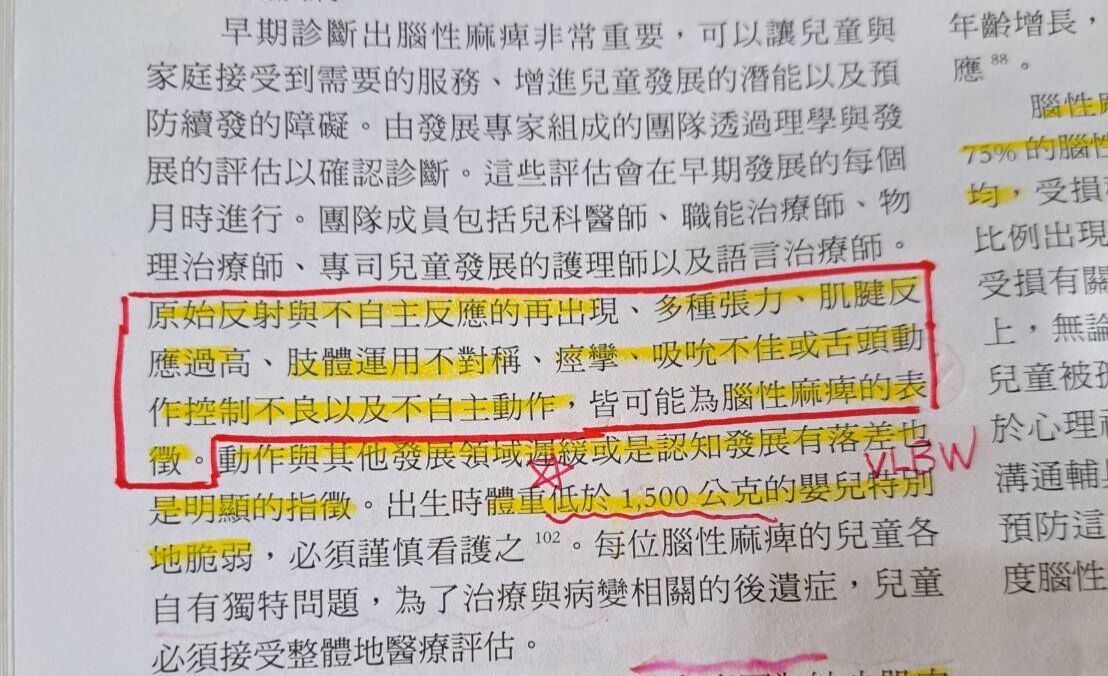 早期診斷出腦性麻痺非常重要，可以讓兒童與
家庭接受到需要的服務、增進兒童發展的潛能以及預
防續發的障礙。由發展專家組成的團隊透過理學與發
展的評估以確認診斷。這些評估會在早期發展的每個
月時進行。團隊成員包括兒科醫師、職能治療師、物
理治療師、專司兒童發展的護理師以及語言治療師。
原始反射與不自主反應的再出現、多種張力、肌腱反
應過高、肢體運用不對稱、痙攣、吸吮不佳或舌頭動
作控制不良以及不自主動作，皆可能為腦性麻痺的表
徵。動作與其他發展領域遲緩或是認知發展有落差也
VLBW
是明顯的指徵。出生時體重低於 1,500 公克的嬰兒特別
地脆弱，必須謹慎看護之 102。每位腦性麻痺的兒童各
自有獨特問題，為了治療與病變相關的後遺症，兒童
必須接受整體地醫療評估。
年齡增長，
應 88。
腦性
75% 的腦性
均，受損
比例出現
受損有關
上，無論
兒童被
於心理
溝通輔
預防這
度腦性